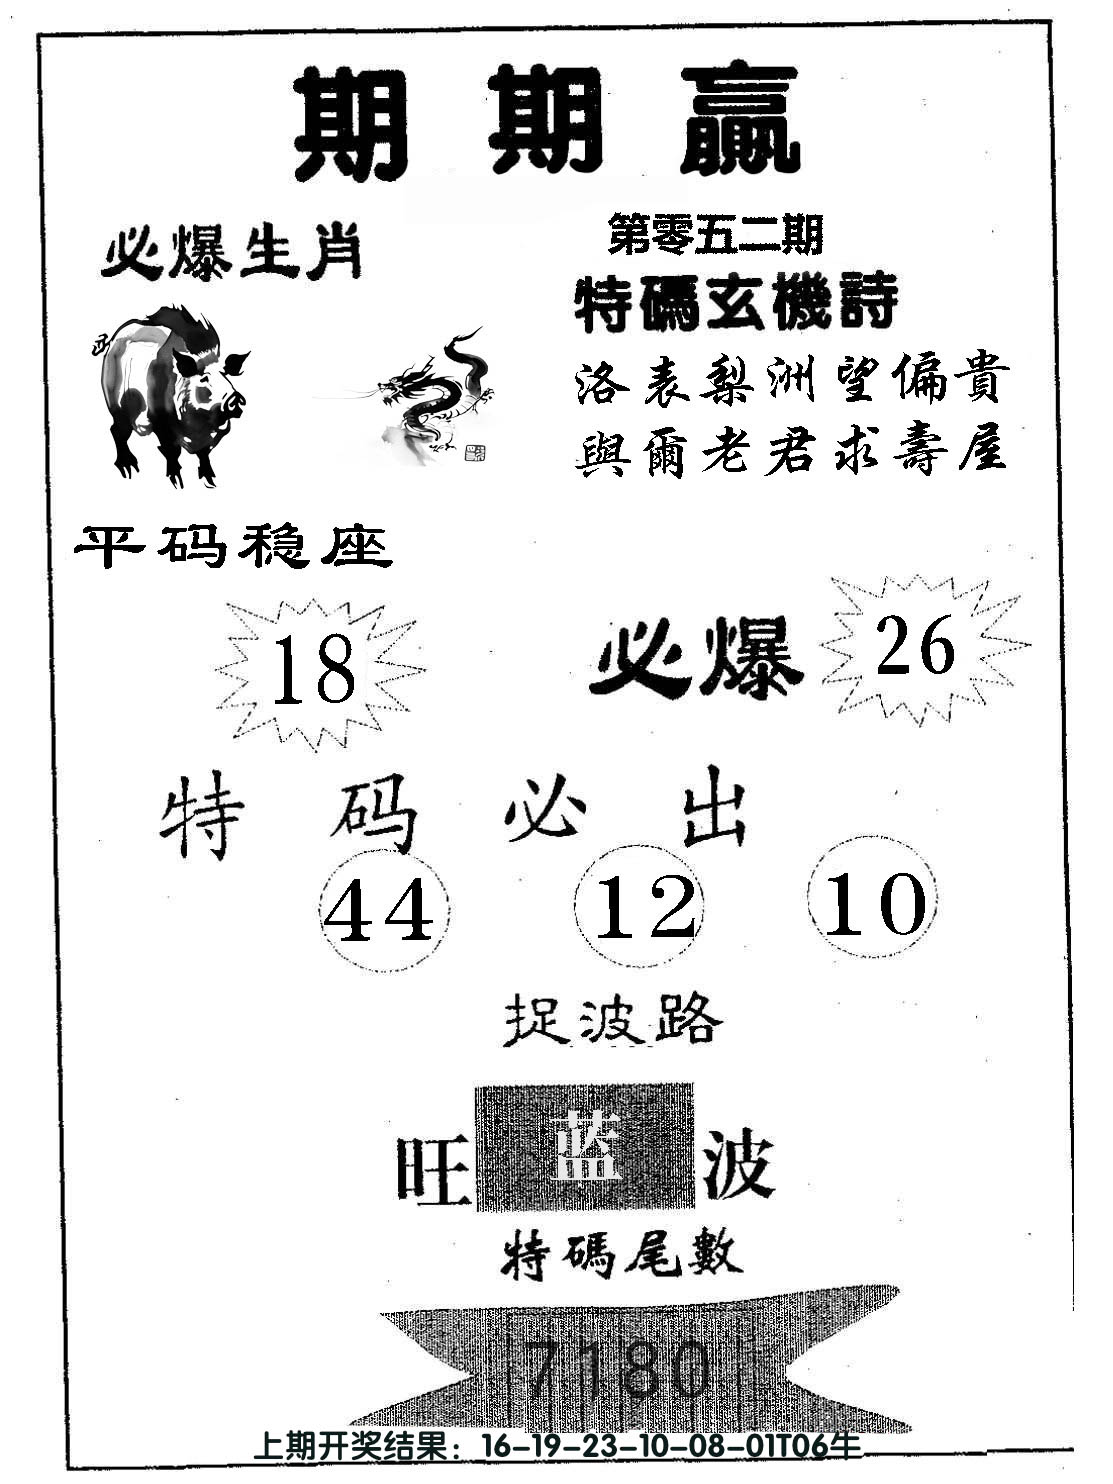 期期赢
必爆生肖
第零五二期
特碼玄機詩
洛表梨洲望偏貴
與爾老君求壽屋
平码稳座
18
必爆
26
特码必出
44 12 10
捉波路
旺 蓝 波
特碼尾數
7180
上期开奖结果：16-19-23-10-08-01T06牛